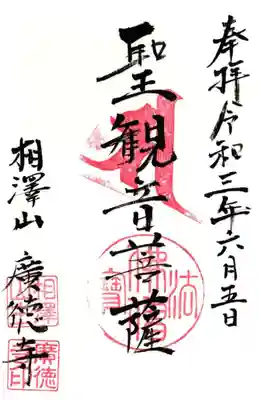 奉拝 令和三年六月五日
聖観音菩薩
相澤山 廣徳寺
佛法僧寳
相澤山
廣徳寺印